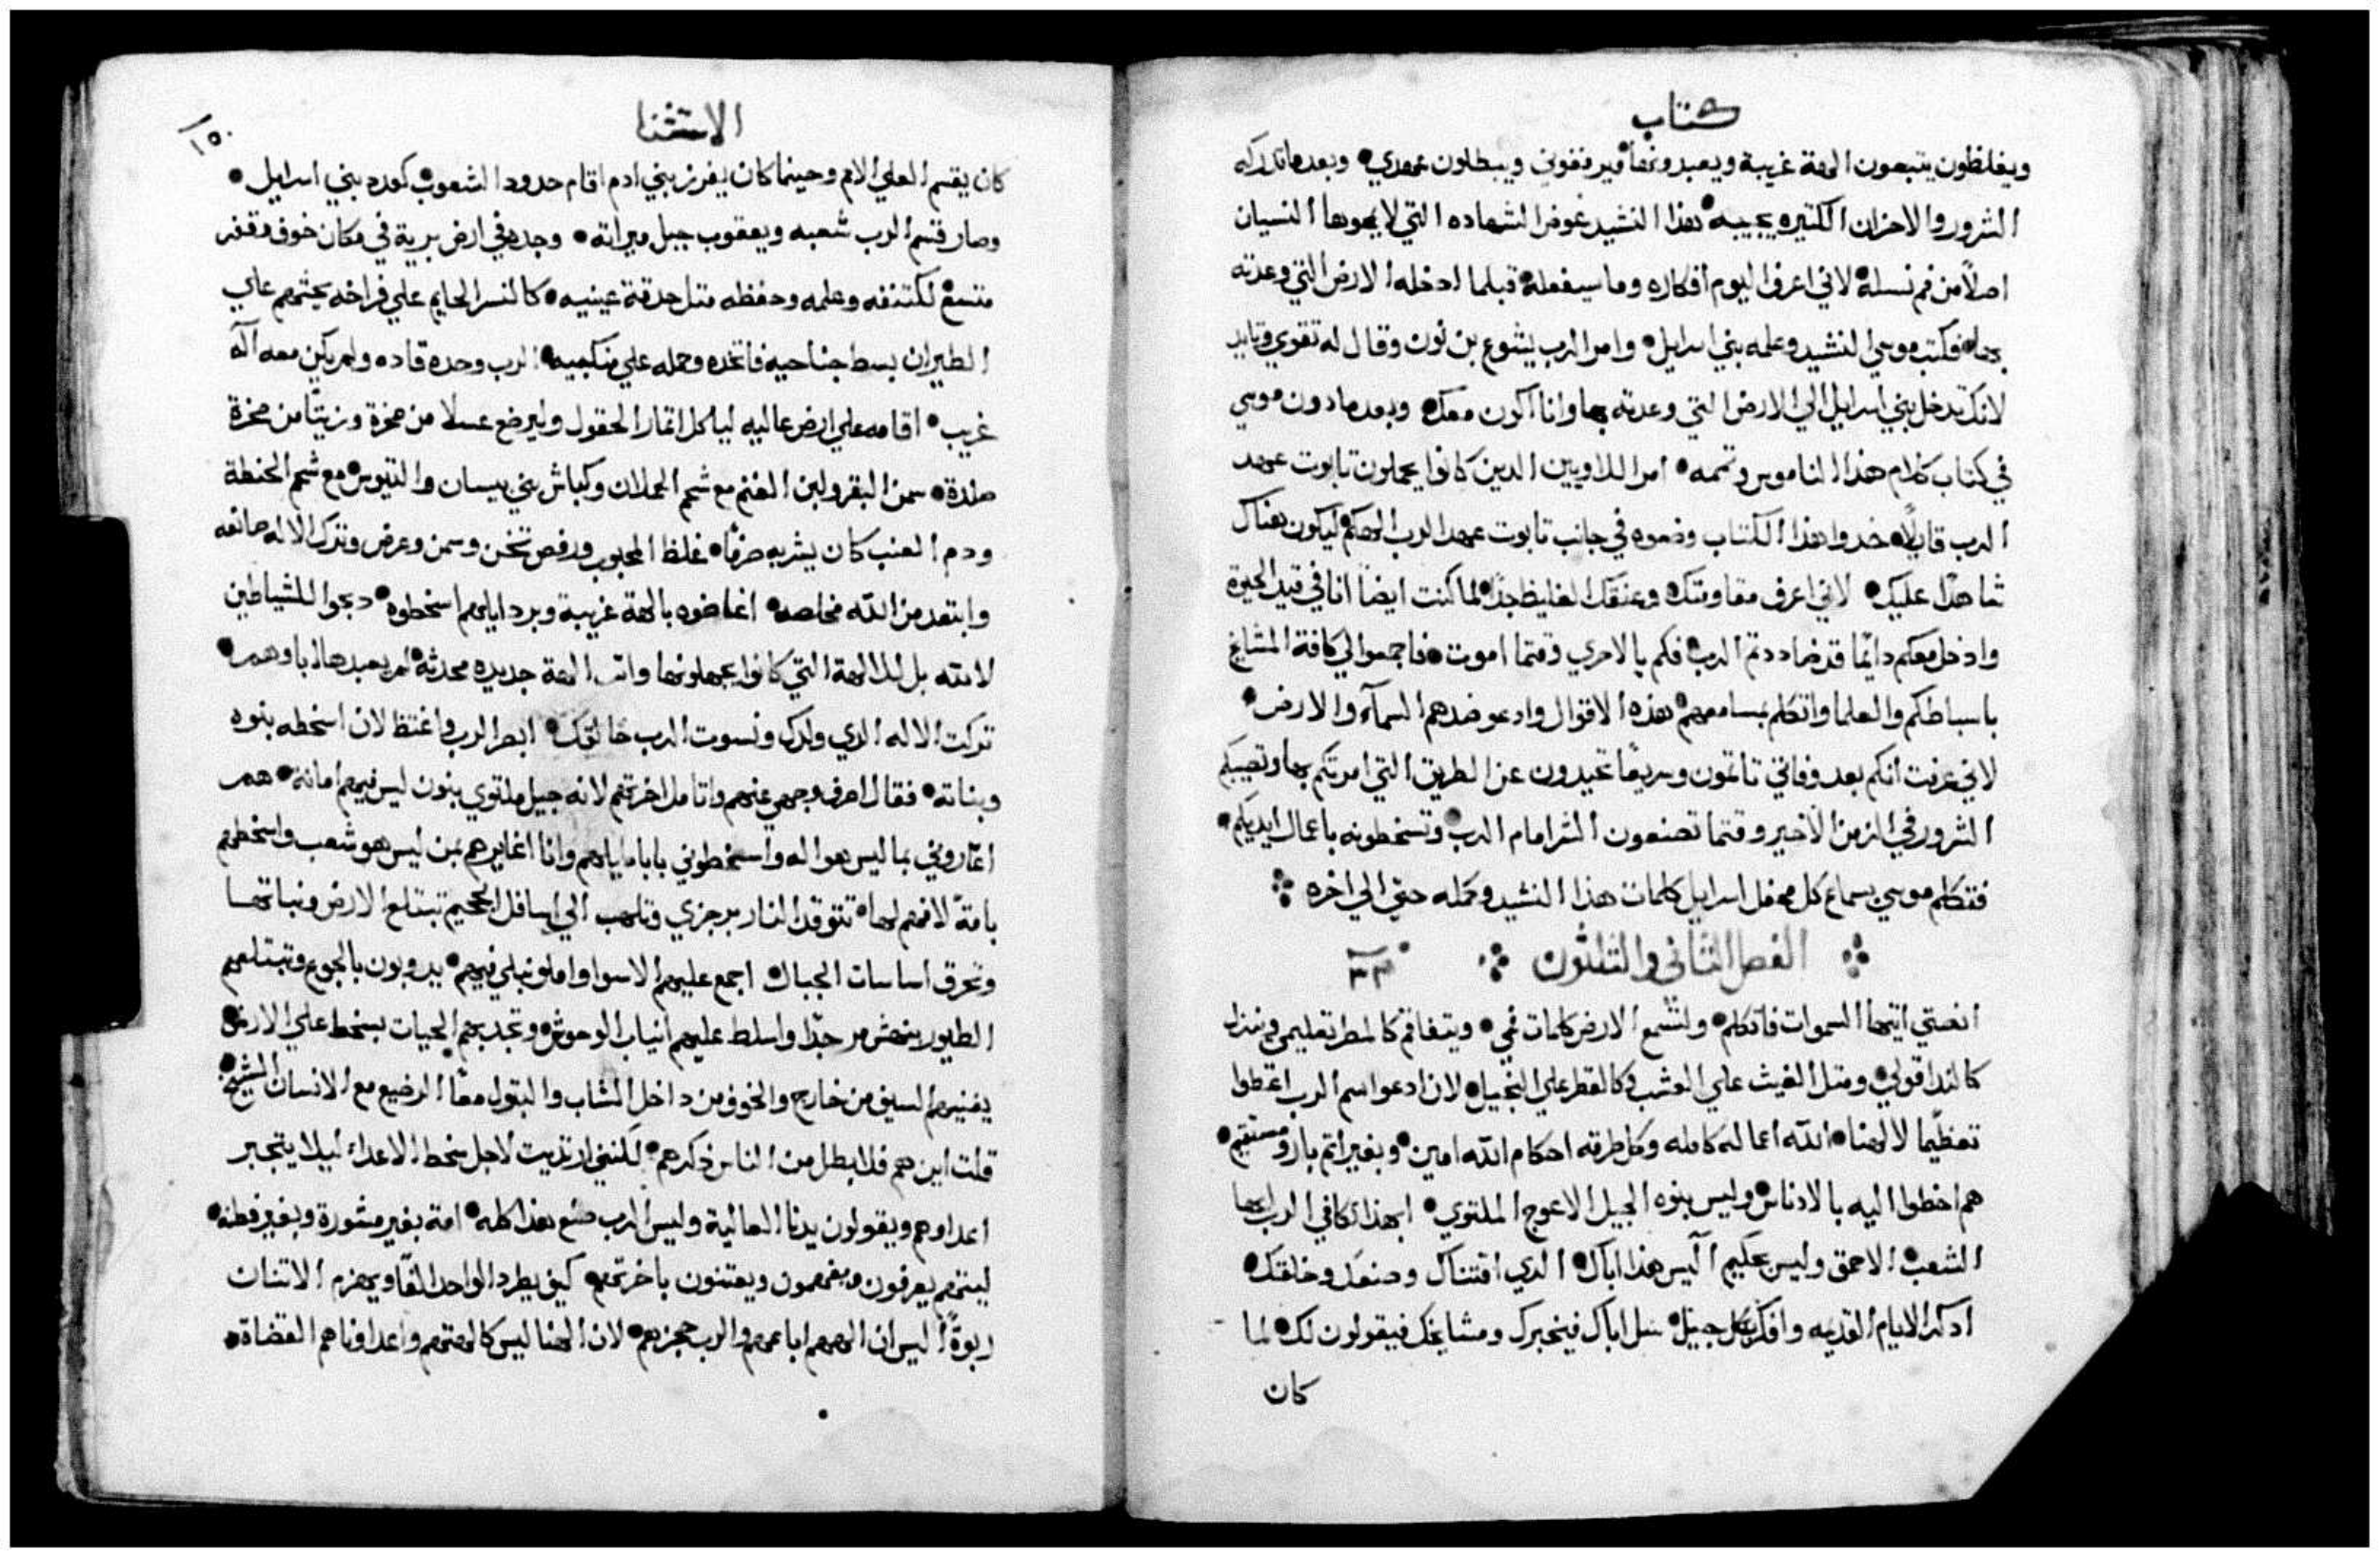 كتاب
ويغلظون يتبعون الهة غريبة ويعبدونها فيرفقوني ويبطلون عهدي• وبعدما تدركه
الشرور والاحزان الكتيره يجيبه• هذا النشيد عوض الشهاده التي لا يمحوها النسيان
اصلاً من فم نسله• لاني اعرف اليوم افكاره وما سيفعله• قبلما ادخله الارض التي وعدته
بها• فكتب موسي النشيد وعلمه بني اسرايل• وامر الرب يشوع بن نون وقال له تقوي وتايد
لانك تدخل بني اسرايل الي الارض التي وعدته بها وانا اكون معك• وبعدما دون موسي
في كتاب كلام هذا الناموس وتممه• امر اللاويين الدين كانوا يحملون تابوت عهد
الرب قايلاً• خدوا هذا الكتاب وضعوه في جانب تابوت عهد الرب الهكم ليكون هناك
شاهدًا عليك• لاني اعرف مقاومتك وعنقك الغليظ جدًا• لما كنت ايضاً انا في قيد الحيوة
وادخل معكم دايمًا قد ضاددتم الرب• فكم بالاحري وقتما اموت• فاجمعوا الي كافة المشايخ
باسباطكم والعلما واتكلم بمسامعهم• هذه الاقوال وادعو ضدهم السمآء والارض•
لاني عرفت انكم بعد وفاتي تاتمون وسريعًا تحيدون عن الطريق التي امرتكم بها وتصيبكم
الشرور في الزمن الاخير وقتما تصنعون الشر امام الرب• وتسخطونه باعمال ايديكم•
فتكلم موسي بسماع كل محفل اسرايل كلمات هذا النشيد وكمله حتي الي اخره
الفصل الثاني والثلثون ٣٢
انصتي ايتها السموات فاتكلم• ولتسمع الارض كلمات فمي• ويتفاقم كالمطر تعليمي فينزل
كالندا قولي• ومتل الغيث علي العشب• وكالقطر علي النجيل• لان ادعوا اسم الرب اعطوا
تعظيمًا لالهنا• الله اعماله كامله وكل طرقه احكام الله امين• وبغير اتم بار ومستقيم•
هم اخطوا اليه بالادناس وليس بنوه الجيل الاعوج الملتوي• ابهذا تكافي الرب ايها
الشعب الاحمق وليس حكيم اليس هذا اباك• الدي اقتناك وصنعك وخلقك•
ادكر الايام القديمه وافكر بكل جيل• سل اباك فيخبرك ومشايخك فيقولون لك• لما
كان
الاستثنا
١٥٠
كان يقسم العلي الامم وحينما كان يفرز بني ادم اقام حدود الشعوب• كعدد بني اسرايل•
وصار قسم الرب شعبه ويعقوب حبل ميراته• وجده في ارض برية في مكان خوف وقفر
متسع• اكتنفه وعلمه وحفظه متل حدقة عينيه• كالنسر الحايم علي فراخه يحتهم علي
الطيران بسط جناحيه فاتخده وحمله علي منكبيه• الرب وحده قاده ولم يكن معه اله
غريب• اقامه علي ارض عاليه لياكل اتمار الحقول وليرضع عسلا من صخرة وزيتًا من صخرة
صلدة• سمن البقر ولبن الغنم مع شحم الحملان وكباش بني بيسان والتيوس مع شحم الحنطة
ودم العنب كان يشربه صرفًا• غلظ المحبوب ورفص تخن وسمن وعرض وترك الاله صانعه
وابتعد من الله مخلصه• اغاضوه بالهة غريبة وبردايلهم اسخطوه• دبحوا للشياطين
لا لله بل للالهة التي كانوا يجهلونها واتت الهة جديده محدثة• لم يعبدها اباوهم•
تركت الاله الدي ولدك ونسوت الرب خالقك• ابصر الرب واغتظ لان اسخطه بنوه
وبناته• فقال اصرف وجهي عنهم واتامل اخرتهم لانه جيل ملتوي بنون ليس فيهم امانة• هم
اغاروني بما ليس هو اله واسخطوني باباطيلهم وانا اغايرهم بمن ليس هو شعب واسخطهم
بامة لا فهم لها• تتوقد النار برجزي وتلهب الي اسافل الجحيم تبتلع الارض ونباتها
وتحرق اساسات الجبال• اجمع عليهم الاسوا واملو نبلي فيهم• يدوبون بالجوع وتبتلعهم
الطيور بنهش مر جدًا واسلط عليهم انياب الوحوش• وتجدبهم الحيات بسخط علي الارض•
يفنيهم السيف من خارج والخوف من داخل الشاب والبتول معًا الرضيع مع الانسان الشيخ•
قلت اين هم فلابطل من الناس دكرهم• لكنني ارتديت لاجل سخط الاعداء ليلا يتجبر
اعداوهم ويقولون يدنا العالية وليس الرب صنع هذا كله• امة بغير مشورة وبغير فطنة•
ليتهم يعرفون ويفهمون ويعتنون باخرتهم• كيف يطرد الواحد الفًا ويهزم الاتنان
ربوةً اليس ان الههم اباعهم والرب حجزهم• لان الهنا ليس كالهتهم واعداونا هم القضاة•